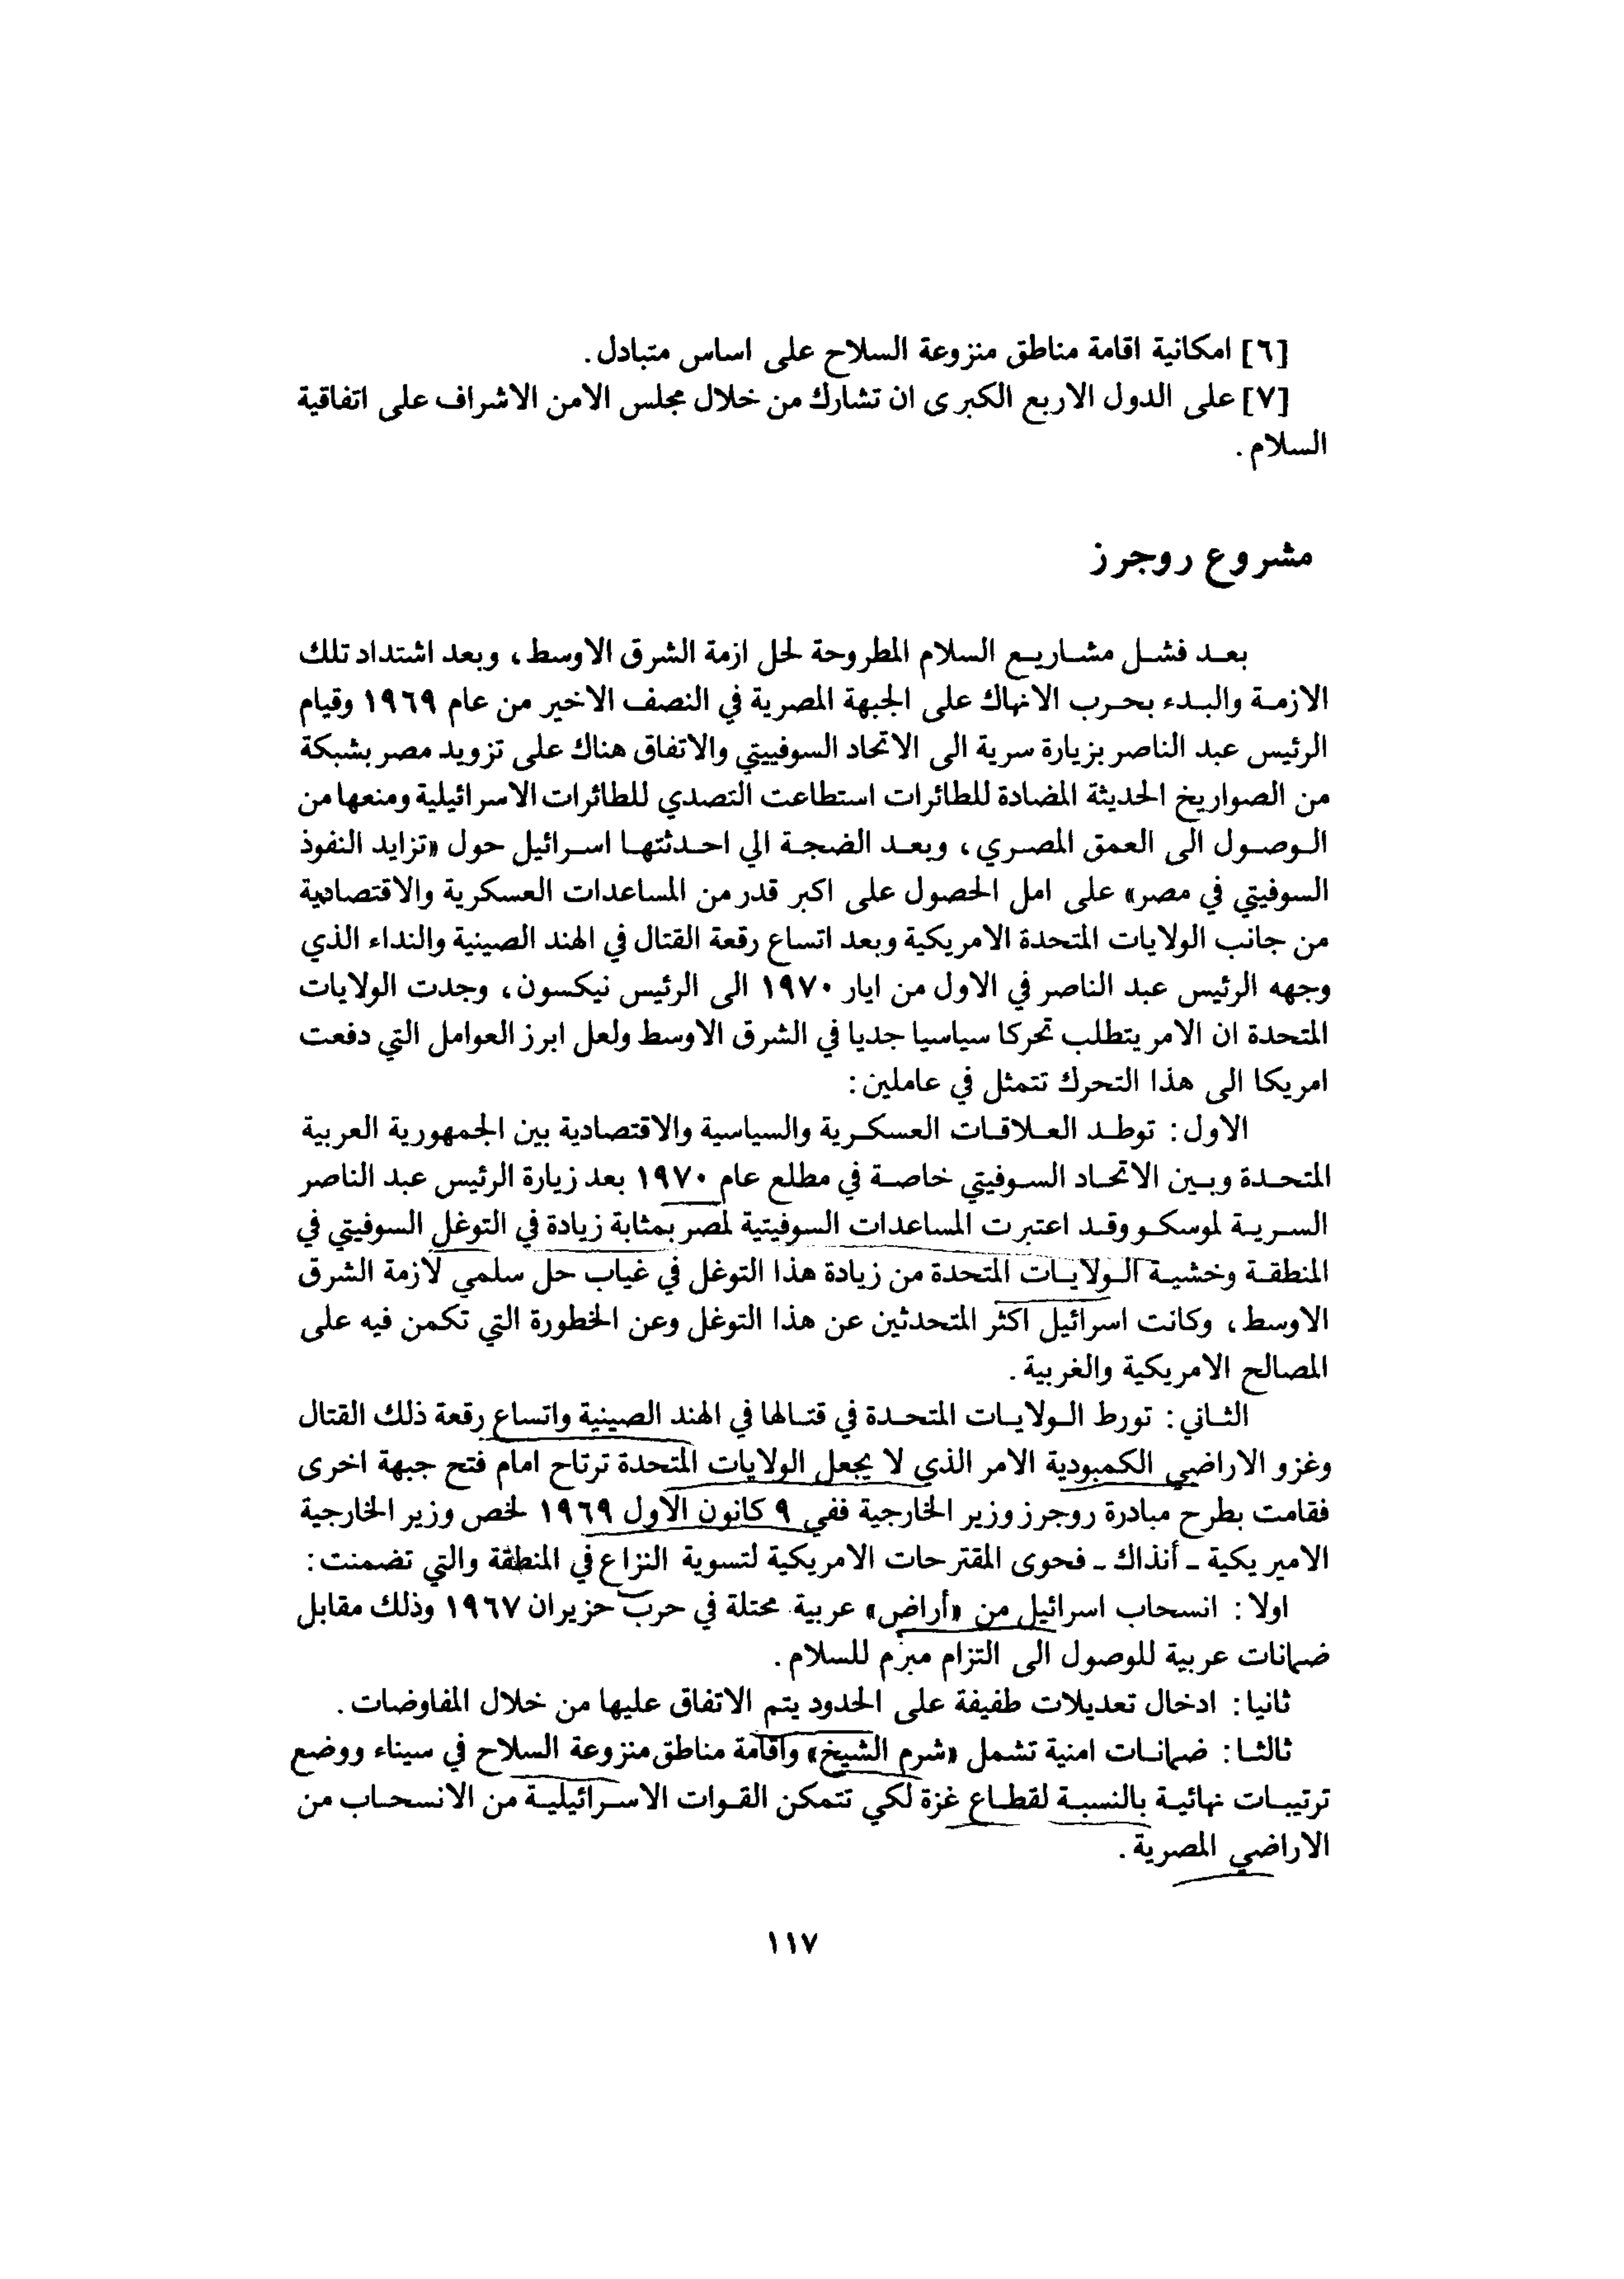 [٦] امكانية اقامة مناطق منزوعة السلاح على اساس متبادل.
[٧] على الدول الاربع الكبرى ان تشارك من خلال مجلس الامن الاشراف على اتفاقية
السلام.
مشروع روجرز
بعد فشل مشاريع السلام المطروحة لحل ازمة الشرق الاوسط، وبعد اشتداد تلك
الازمة والبدء بحرب الانهاك على الجبهة المصرية في النصف الاخير من عام ١٩٦٩ وقيام
الرئيس عبد الناصر بزيارة سرية الى الاتحاد السوفييتي والاتفاق هناك على تزويد مصر بشبكة
من الصواريخ الحديثة المضادة للطائرات استطاعت التصدي للطائرات الاسرائيلية ومنعها من
الوصول الى العمق المصري، وبعد الضجة الي احدثتها اسرائيل حول «تزايد النفوذ
السوفيتي في مصر» على امل الحصول على اكبر قدر من المساعدات العسكرية والاقتصادية
من جانب الولايات المتحدة الامريكية وبعد اتساع رقعة القتال في الهند الصينية والنداء الذي
وجهه الرئيس عبد الناصر في الاول من ايار ١٩٧٠ الى الرئيس نيكسون، وجدت الولايات
المتحدة ان الامر يتطلب تحركا سياسيا جديا في الشرق الاوسط ولعل ابرز العوامل التي دفعت
امريكا الى هذا التحرك تتمثل في عاملين:
الاول: توطد العلاقات العسكرية والسياسية والاقتصادية بين الجمهورية العربية
المتحدة وبين الاتحاد السوفيتي خاصة في مطلع عام ١٩٧٠ بعد زيارة الرئيس عبد الناصر
السرية لموسكو وقد اعتبرت المساعدات السوفيتية لمصر بمثابة زيادة في التوغل السوفيتي في
المنطقة وخشية الولايات المتحدة من زيادة هذا التوغل في غياب حل سلمي لازمة الشرق
الاوسط، وكانت اسرائيل اكثر المتحدثين عن هذا التوغل وعن الخطورة التي تكمن فيه على
المصالح الامريكية والغربية.
الثاني: تورط الولايات المتحدة في قتالها في الهند الصينية واتساع رقعة ذلك القتال
وغزو الاراضي الكمبودية الامر الذي لا يجعل الولايات المتحدة ترتاح امام فتح جبهة اخرى
فقامت بطرح مبادرة روجرز وزير الخارجية ففي ٩ كانون الاول ١٩٦٩ لخص وزير الخارجية
الاميريكية - أنذاك - فحوى المقترحات الامريكية لتسوية النزاع في المنطقة والتي تضمنت:
اولا: انسحاب اسرائيل من «أراض» عربية محتلة في حرب حزيران ١٩٦٧ وذلك مقابل
ضمانات عربية للوصول الى التزام مبرم للسلام.
ثانيا: ادخال تعديلات طفيفة على الحدود يتم الاتفاق عليها من خلال المفاوضات.
ثالثا: ضمانات امنية تشمل «شرم الشيخ» واقامة مناطق منزوعة السلاح في سيناء ووضع
ترتيبات نهائية بالنسبة لقطاع غزة لكي تتمكن القوات الاسرائيلية من الانسحاب من
الاراضي المصرية.
١١٧